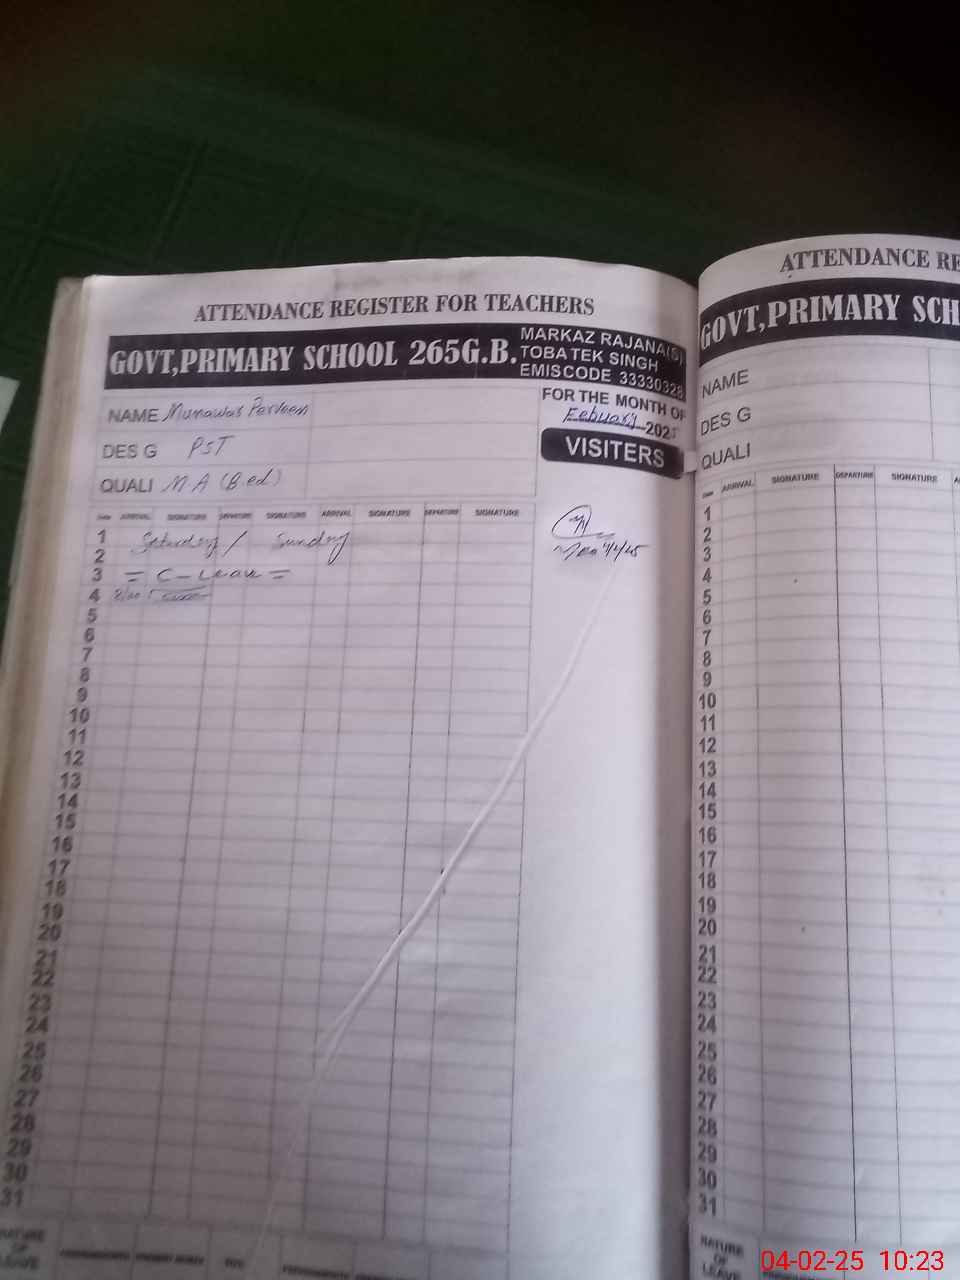 ATTENDANCE REGISTER FOR TEACHERS
GOVT,PRIMARY SCHOOL 265G.B.
MARKAZ RAJANA(S)
TOBA TEK SINGH
EMISCODE 33330328
NAME Munawar Parveen
DES G PST
QUALI M.A (B.ed)
FOR THE MONTH OF
Febuary 2025
VISITERS
Date ARRIVAL SIGNATURE DEPARTURE SIGNATURE ARRIVAL SIGNATURE DEPARTURE SIGNATURE
1 Saturday / Sunday
2
3 = C-Leave =
4
5
6
7
8
9
10
11
12
13
14
15
16
17
18
19
20
21
22
23
24
25
26
27
28
29
30
31
NATURE
OF
LEAVE
ATTENDANCE RE
GOVT,PRIMARY SCH
NAME
DES G
QUALI
Date ARRIVAL SIGNATURE DEPARTURE SIGNATURE
1
2
3
4
5
6
7
8
9
10
11
12
13
14
15
16
17
18
19
20
21
22
23
24
25
26
27
28
29
30
31
NATURE
OF
LEAVE
04-02-25 10:23